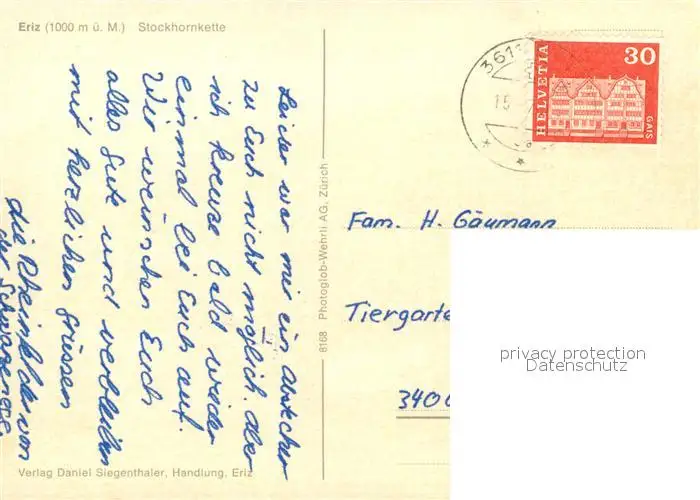 Eriz (1000 m ü. M.) Stockhornkette
Leider war mir ein Abstecher
zu Euch nicht möglich. Aber
ich kreuze bald wieder
einmal bei Euch auf.
Wir wünschen Euch
alles Gute und verbleiben
mit herzlichen Grüssen
die Rheinfelder von
der Schwarzenegg
Verlag Daniel Siegenthaler, Handlung, Eriz
8168 Photoglob-Wehrli AG, Zürich
361
15
HELVETIA
30
GAIS
Fam. H. Gäumann
Tiergarte
3400
privacy protection
Datenschutz